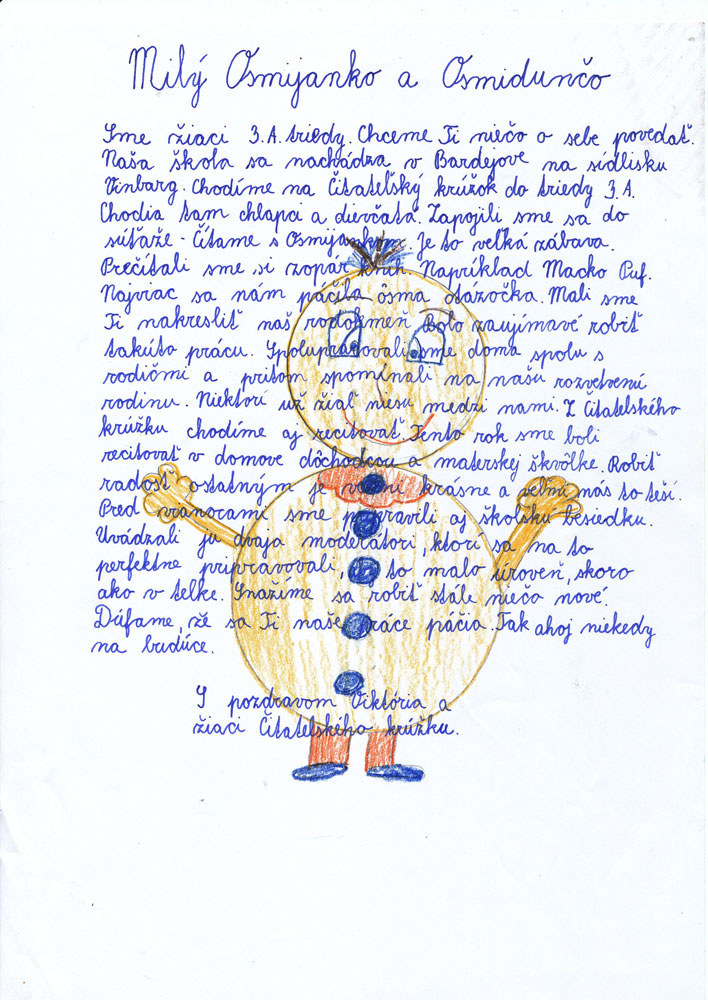 Milý Osmijanko a Osmidunčo
Sme žiaci 3.A. triedy. Chceme Ti niečo o sebe povedať.
Naša škola sa nachádza v Bardejove na sídlisku
Vinbarg. Chodíme na Čitateľský krúžok do triedy 3.A.
Chodia tam chlapci a dievčatá. Zapojili sme sa do
súťaže - Čítame s Osmijankom. Je to veľká zábava.
Prečítali sme si zopár kníh. Napríklad Macko Puf.
Najviac sa nám páčila ôsma otázočka. Mali sme
Ti nakresliť náš rodokmeň. Bolo zaujímavé robiť
takúto prácu. Spolupracovali sme doma spolu s
rodičmi a pritom spomínali na našu rozvetvenú
rodinu. Niektorí už žiaľ niesu medzi nami. Z Čitateľského
krúžku chodíme aj recitovať. Tento rok sme boli
recitovať v domove dôchodcou a materskej škvôlke. Robiť
radosť ostatným je veľmi krásne a veľmi nás to teší.
Pred vianocami sme pripravili aj školskú besiedku.
Uvádzali ju dvaja moderátori, ktorí sa na to
perfektne pripravovali, to malo úroveň, skoro
ako v telke. Snažíme sa robiť stále niečo nové.
Dúfame, že sa Ti naše práce páčia. Tak ahoj niekedy
na budúce.
S pozdravom Viktória a
žiaci Čitateľského krúžku.